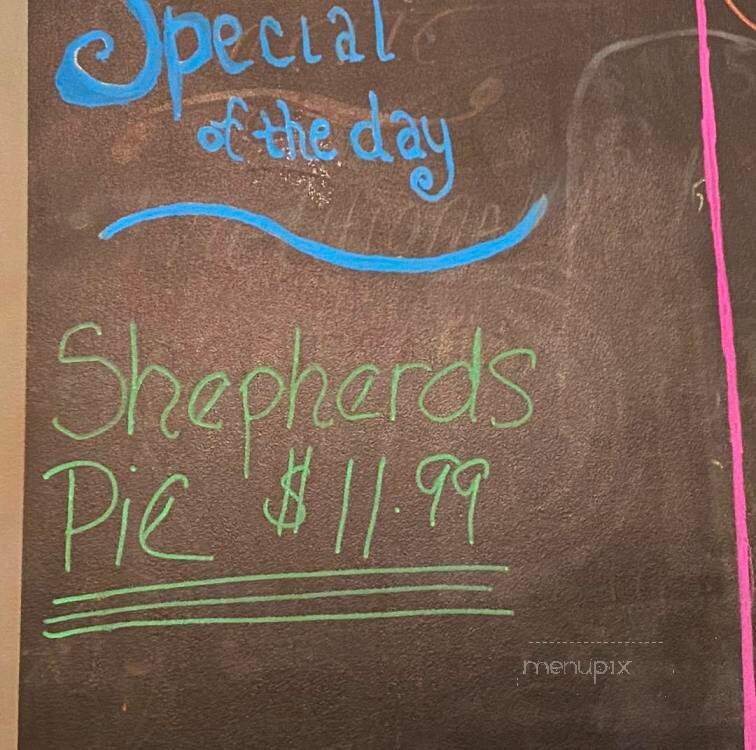 Special
of the day
Shepherds
Pie $11.99
menupix